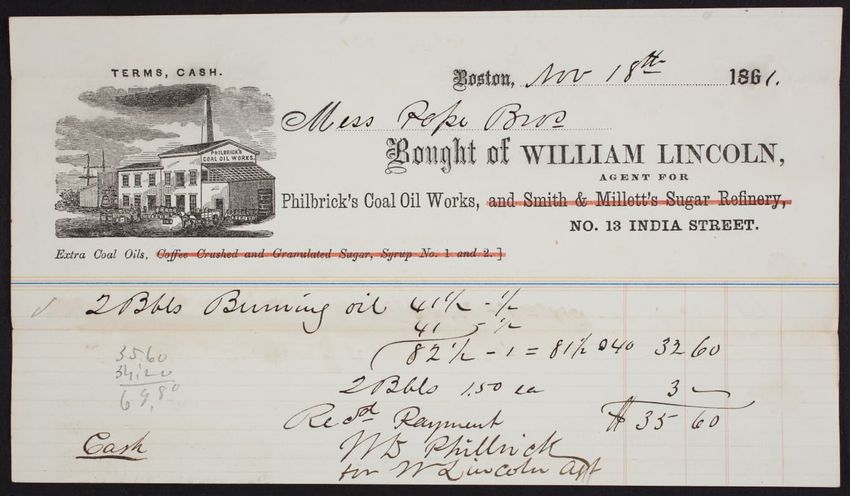 TERMS, CASH.
Boston, Nov 18th 1861.
PHILBRICK'S
COAL OIL WORKS.
Mess Pope Bros
Bought of WILLIAM LINCOLN,
AGENT FOR
Philbrick's Coal Oil Works, and Smith & Millett's Sugar Refinery,
NO. 13 INDIA STREET.
Extra Coal Oils, Coffee Crushed and Granulated Sugar, Syrup No. 1 and 2.]
2 Bbls Burning oil 41½ - ½
41 - ½
82½ - 1 = 81½ @40 32 60
2 Bbls 1.50 ea 3 —
$ 35 60
Recd Payment
W D Philbrick
for W Lincoln Agt
Cash
35,60
34,20
69,80